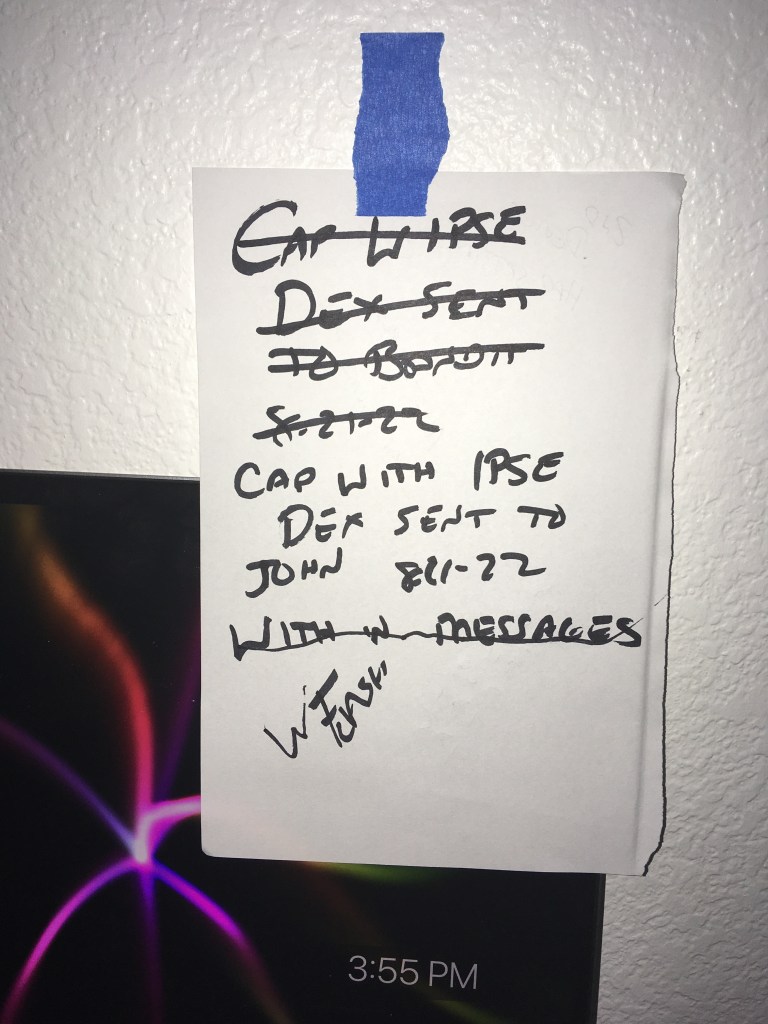 CAP W IPSE
DEX SENT
TO
8-21-22
CAP WITH IPSE
DEX SENT TO
JOHN 811-22
WITH N MESSAGES
3:55 PM